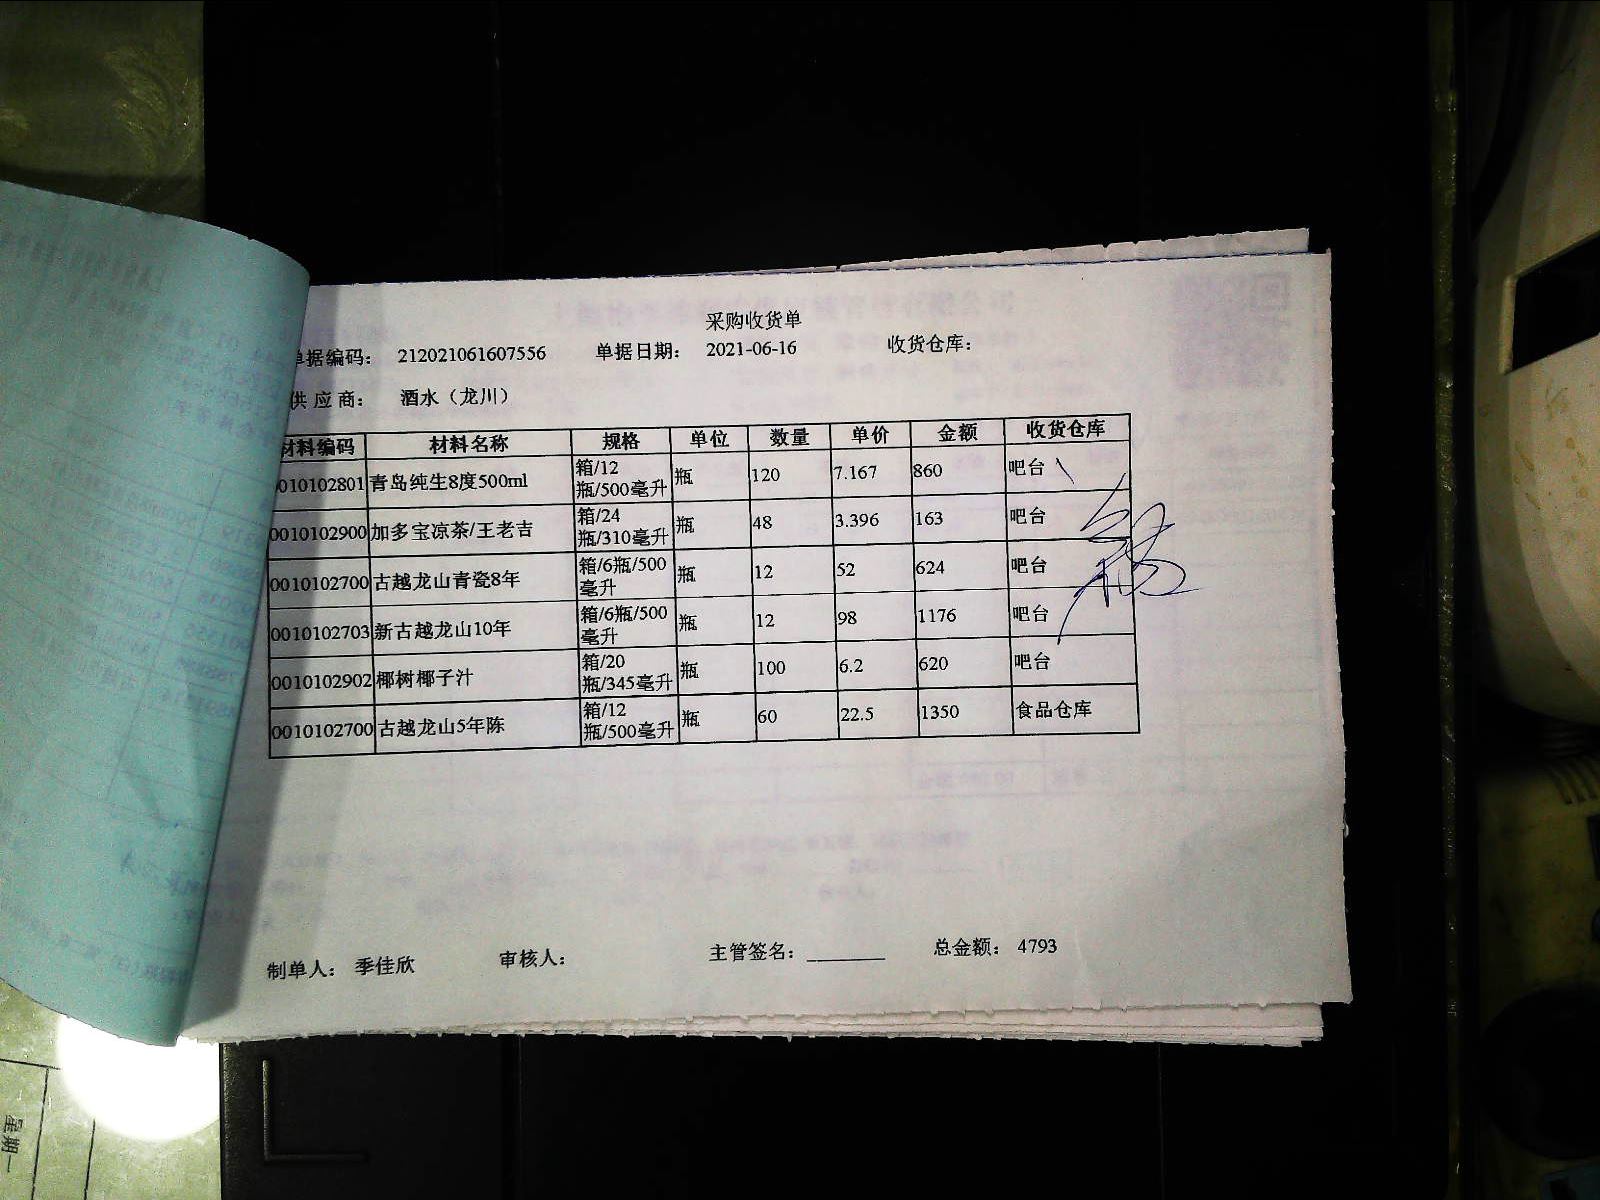 采购收货单
单据编码： 212021061607556 单据日期： 2021-06-16 收货仓库：
供应商： 酒水（龙川）
材料编码 材料名称 规格 单位 数量 单价 金额 收货仓库
0010102801 青岛纯生8度500ml 箱/12瓶/500毫升 瓶 120 7.167 860 吧台
0010102900 加多宝凉茶/王老吉 箱/24瓶/310毫升 瓶 48 3.396 163 吧台
0010102700 古越龙山青瓷8年 箱/6瓶/500毫升 瓶 12 52 624 吧台
0010102703 新古越龙山10年 箱/6瓶/500毫升 瓶 12 98 1176 吧台
0010102902 椰树椰子汁 箱/20瓶/345毫升 瓶 100 6.2 620 吧台
0010102700 古越龙山5年陈 箱/12瓶/500毫升 瓶 60 22.5 1350 食品仓库
制单人： 季佳欣 审核人： 主管签名：________ 总金额： 4793
星期一